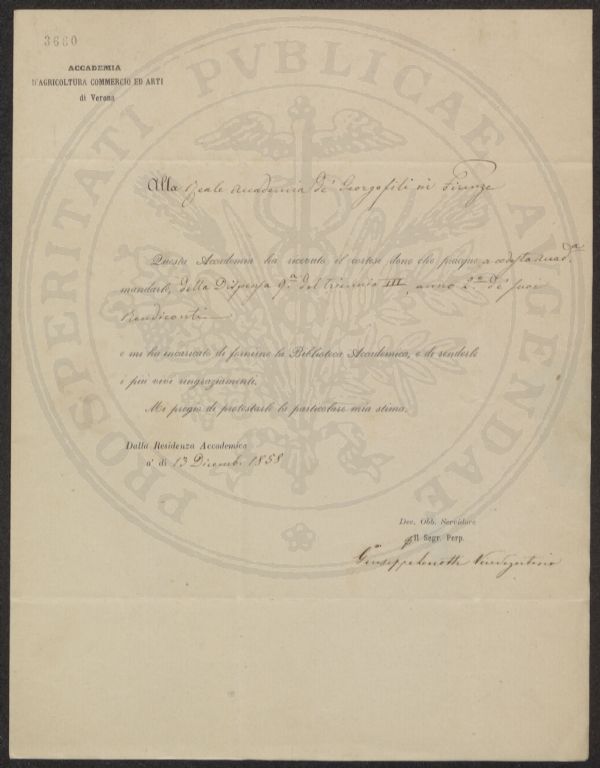 3660
ACCADEMIA
D'AGRICOLTURA COMMERCIO ED ARTI
di Verona
PROSPERITATI PVBLICAE AVGENDAE
Alla Reale Accademia de' Georgofili in Firenze
Questa Accademia ha ricevuto il cortese dono che piacque a codesta Accad.a
mandarle, della Dispensa 9.a del triennio III, anno 2.o de' suoi
Rendiconti
e mi ha incaricato di fornirne la Biblioteca Accademica, e di renderle
i più vivi ringraziamenti.
Mi pregio di protestarle la particolare mia stima.
Dalla Residenza Accademica
a' dì 13 Dicemb. 1858
Dev. Obb. Servidore
Il Segr. Perp.
Giuseppe